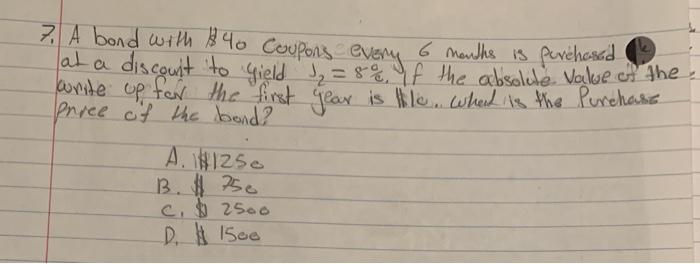 7. A bond with $40 Coupons every 6 months is purchased
at a discount to yield J2 = 8%. If the absolute value of the
write up for the first year is when is the Purchase
price of the bond?
A. $1250
B. $ 750
C. $ 2500
D. $ 1500